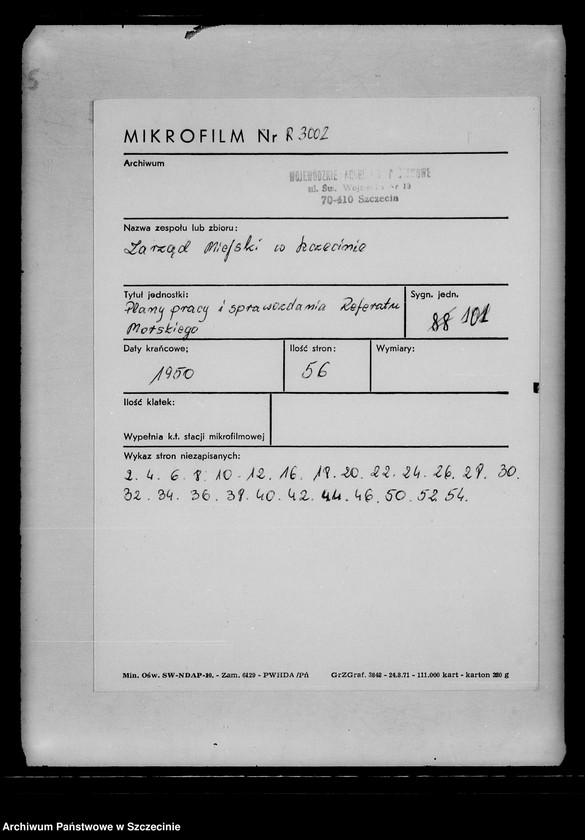 MIKROFILM Nr R 3002
Archiwum
WOJEWÓDZKIE
ul. Św. Wojciecha Nr 13
70-410 Szczecin
Nazwa zespołu lub zbioru:
Zarząd Miejski w Szczecinie
Tytuł jednostki:
Plany pracy i sprawozdania Referatu
Morskiego
Sygn. jedn.
88 101
Daty krańcowe;
1950
Ilość stron:
56
Wymiary:
Ilość klatek:
Wypełnia k.t. stacji mikrofilmowej
Wykaz stron niezapisanych:
2. 4. 6. 8. 10. 12. 16. 18. 20. 22. 24. 26. 28. 30.
32. 34. 36. 38. 40. 42. 44. 46. 50. 52. 54.
Min. Ośw. SW-NDAP-10. - Zam. 6129 - PWHDA/Pń GrZGraf. 3848 - 24.8.71 - 111.000 kart - karton 220 g
Archiwum Państwowe w Szczecinie